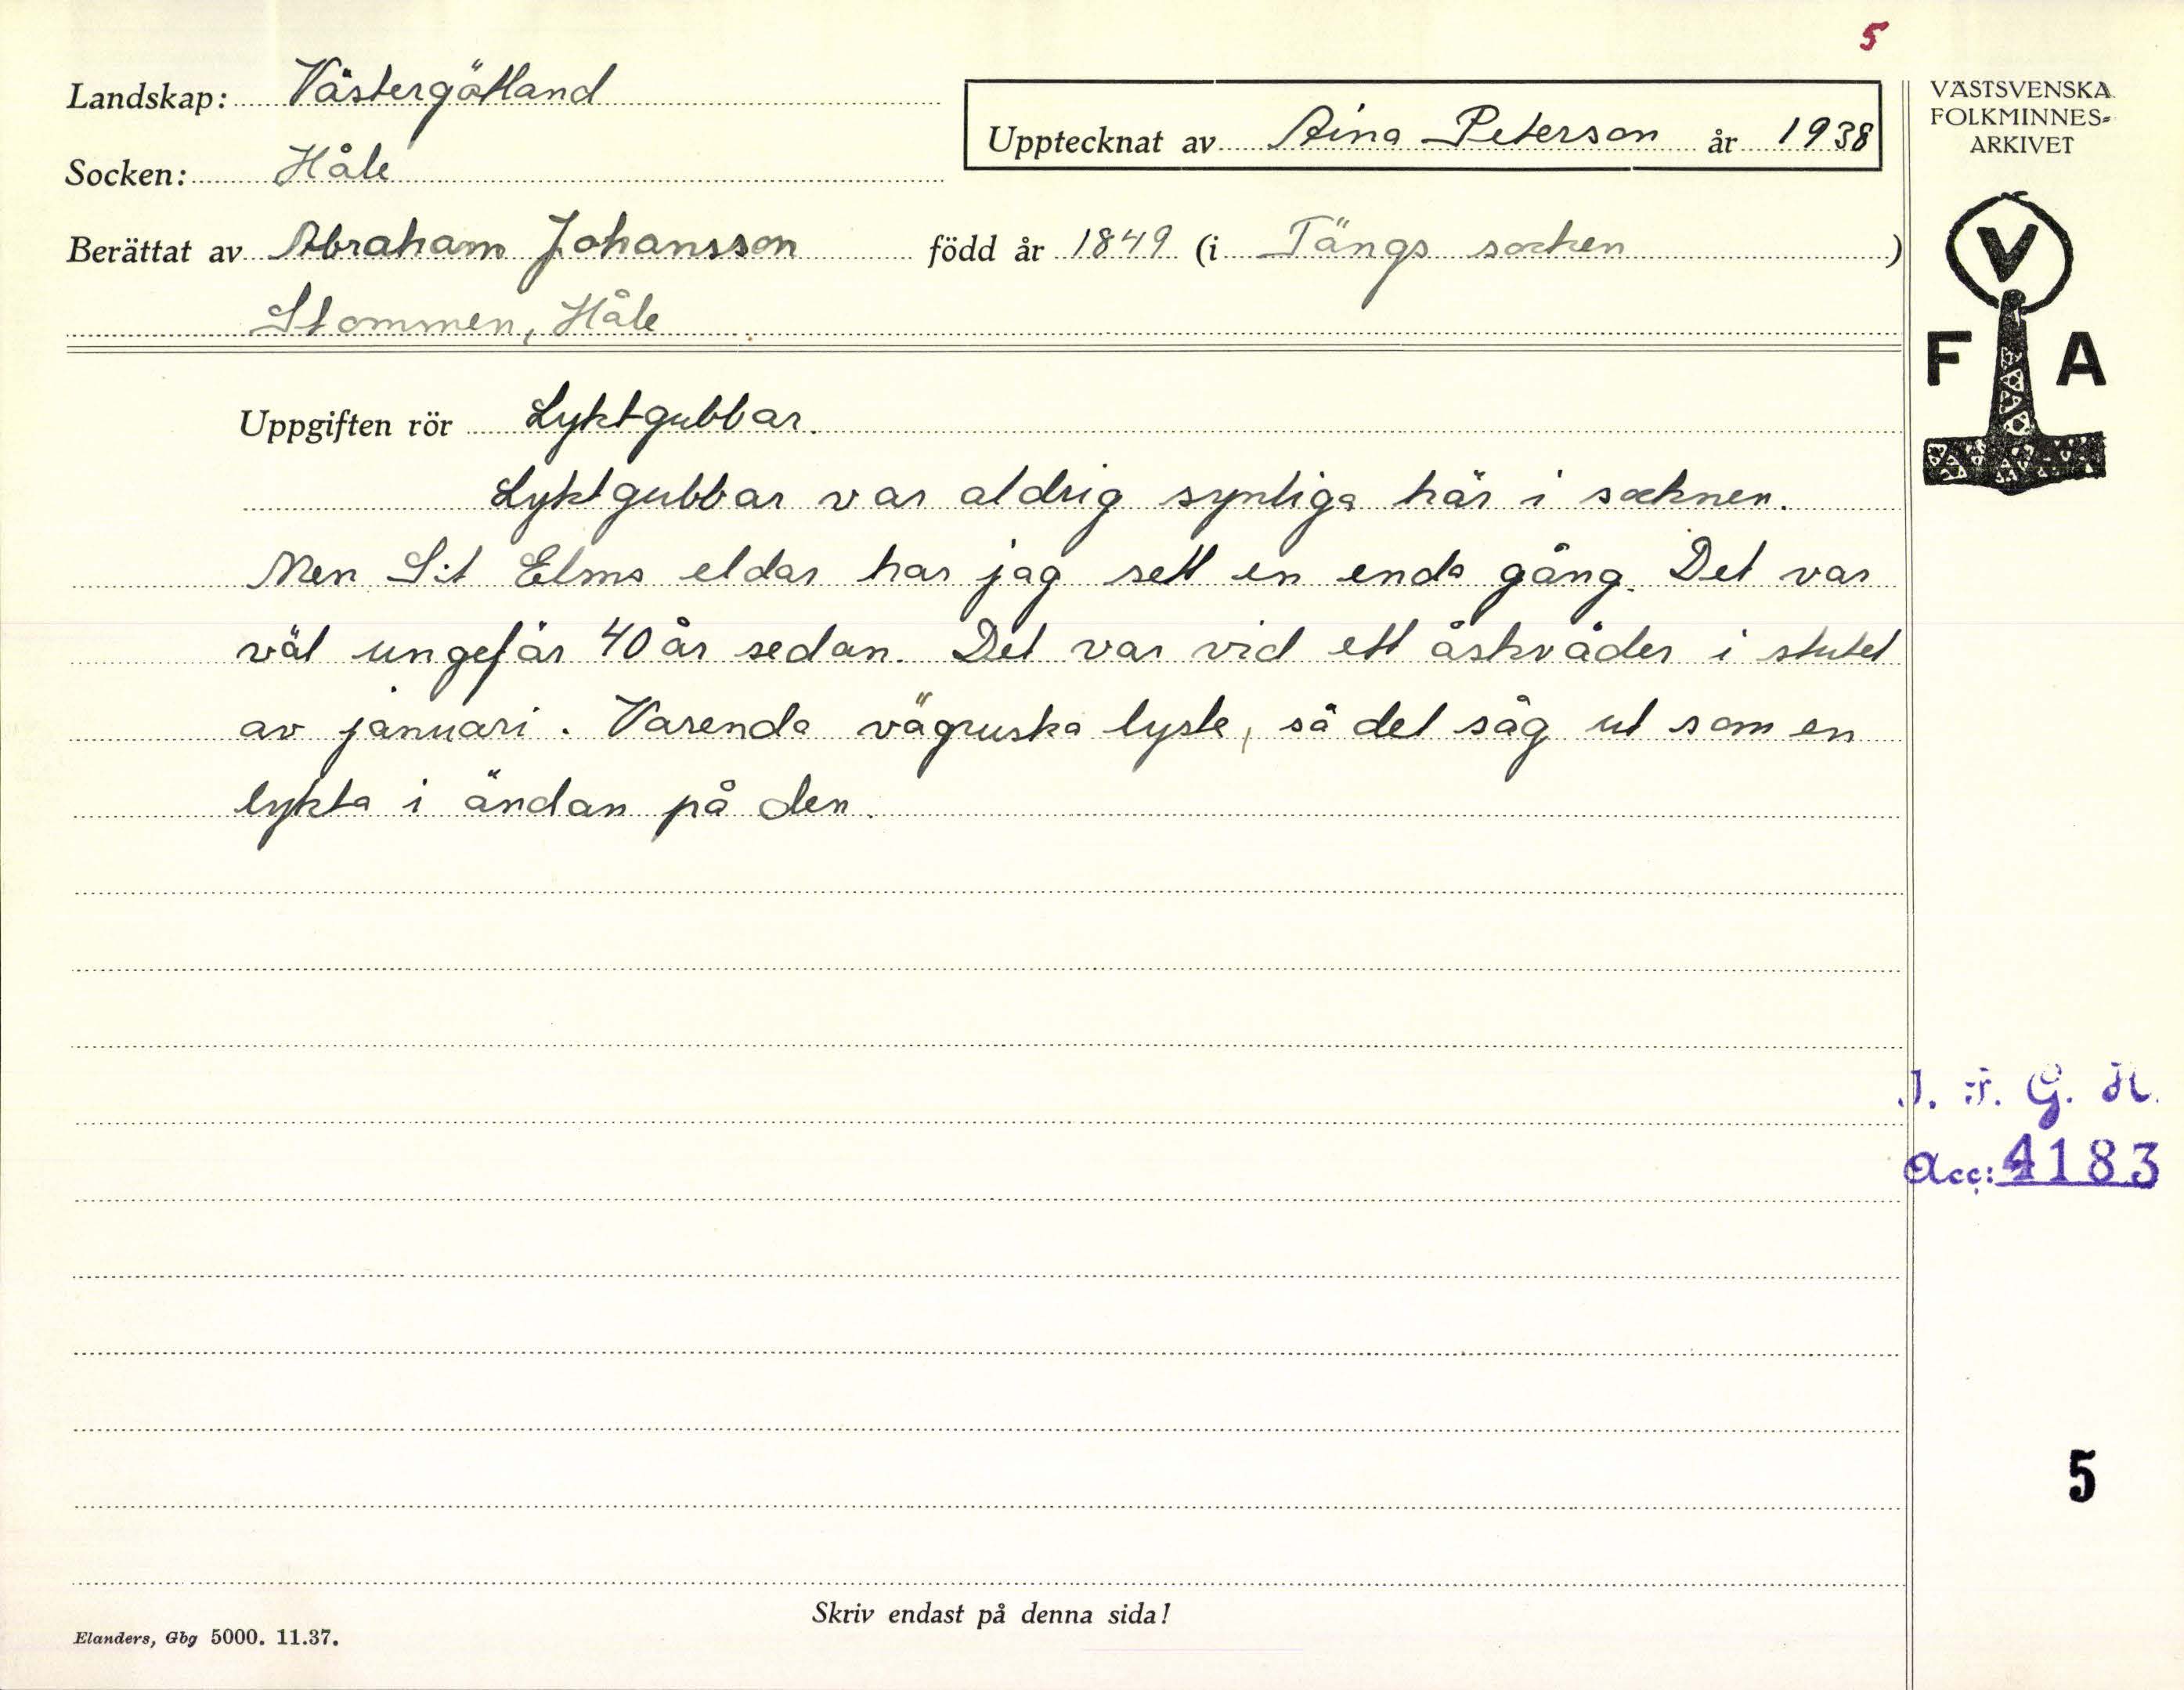 5
Landskap: Västergötland
Upptecknat av Aina Peterson år 1938
Socken: Håle
Berättat av Abraham Johansson född år 1849 (i Tängs socken)
Stommen, Håle
VÄSTSVENSKA
FOLKMINNES-
ARKIVET
V
F A
Uppgiften rör Lyktgubbar.
Lyktgubbar var aldrig synliga här i socknen.
Men S:t Elms eldar har jag sett en enda gång. Det var
väl ungefär 40 år sedan. Det var vid ett åskväder i slutet
av januari. Varenda vägruska lyste, så det såg ut som en
lykta i ändan på den.
I. F. G. H.
Acc: 4183
5
Skriv endast på denna sida!
Elanders, Gbg 5000. 11.37.